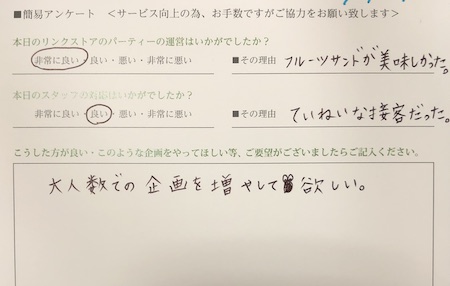 ■簡易アンケート <サービス向上の為、お手数ですがご協力をお願い致します>
本日のリンクストアのパーティーの運営はいかがでしたか?
非常に良い・良い・悪い・非常に悪い ■その理由 フルーツサンドが美味しかった。
本日のスタッフの対応はいかがでしたか?
非常に良い・良い・悪い・非常に悪い ■その理由 ていねいな接客だった。
こうした方が良い・このような企画をやってほしい等、ご要望がございましたらご記入ください。
大人数での企画を増やして欲しい。